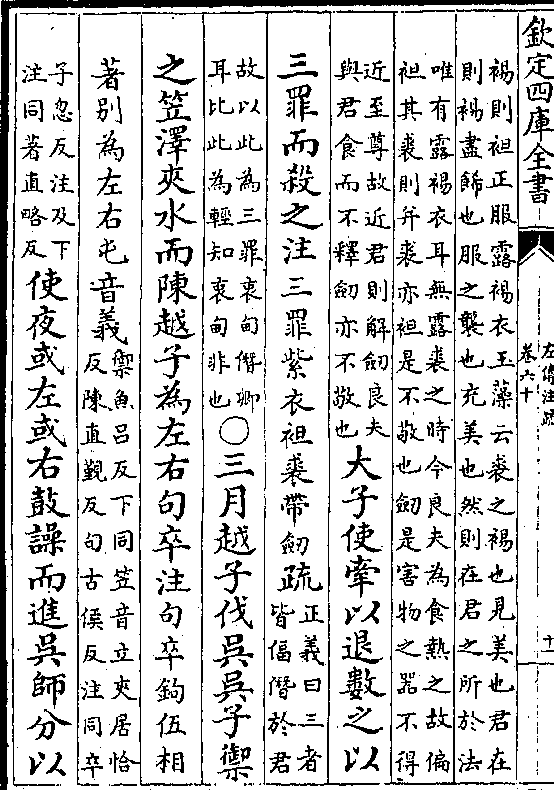 欽定四庫全書
左傳注疏
卷六十
十一
裼則袒正服露裼衣玉藻云裘之裼也見美也君在
則裼盡飾也服之襲也充美也然則在君之所於法
唯有露裼衣耳無露裘之時今良夫為食熱之故偏
袒其裘則并裘亦袒是不敬也劒是害物之器不得
近至尊故近君則解劒良夫
與君食而不釋劒亦不敬也
大子使牽以退數之以
三罪而殺之注三罪紫衣袒裘帶劒疏
正義曰三者
皆偪僭於君
故以此為三罪衷甸僭卿
耳比此為輕知衷甸非也
○三月越子伐吳吳子禦
之笠澤夾水而陳越子為左右句卒注句卒鉤伍相
著別為左右屯音義
禦魚呂反下同笠音立夾居恰
反陳直覲反句古侯反注同卒
子忽反注及下
注同著直略反
使夜或左或右鼓譟而進吳師分以